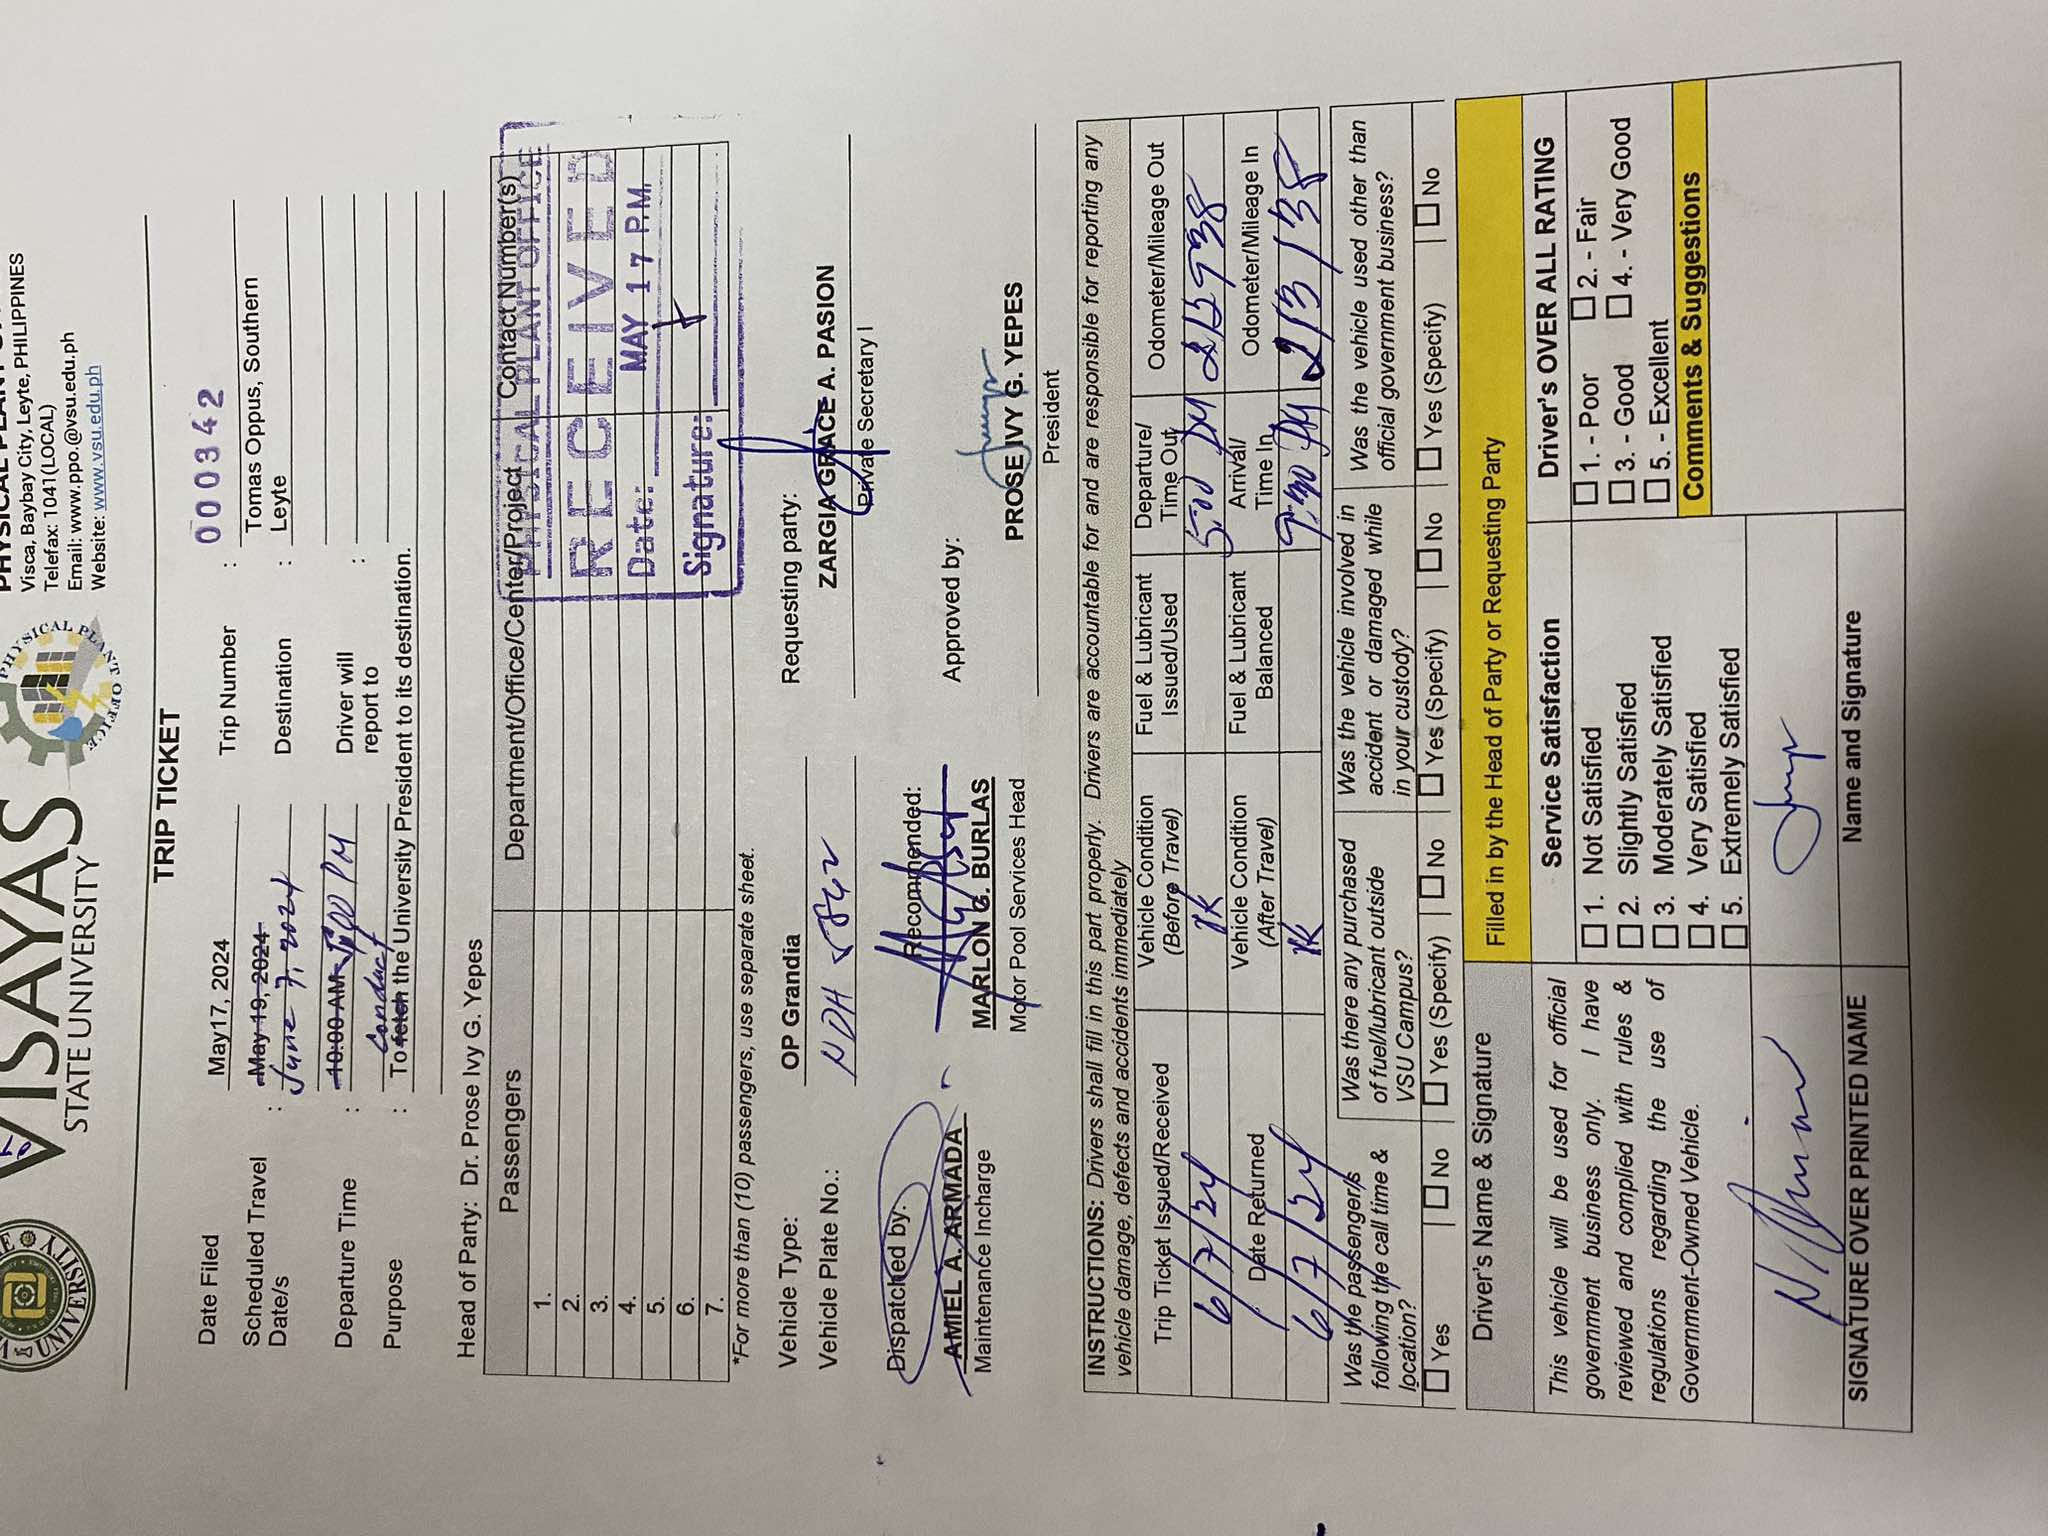 VISAYAS
STATE UNIVERSITY
PHYSICAL PLANT OFFICE
Visca, Baybay City, Leyte, PHILIPPINES
Telefax: 1041(LOCAL)
Email: www.ppo.@vsu.edu.ph
Website: www.vsu.edu.ph
TRIP TICKET
Date Filed May17, 2024 Trip Number : 000342
Scheduled Travel Date/s : May 19, 2024 June 7, 2024 Destination : Tomas Oppus, Southern Leyte
Departure Time : 10:00 AM 5:00 PM Driver will report to :
Purpose : To fetch conduct the University President to its destination.
Head of Party: Dr. Prose Ivy G. Yepes
Passengers Department/Office/Center/Project Contact Number(s)
1.
2.
3.
4.
5.
6.
7.
PHYSICAL PLANT OFFICE
RECEIVED
Date: MAY 17 P.M.
Signature:
*For more than (10) passengers, use separate sheet.
Vehicle Type: OP Grandia
Vehicle Plate No.:
Requesting party:
ZARGIA GRACE A. PASION
Private Secretary I
Dispatched by:
AMIEL A. ARMADA
Maintenance Incharge
Recommended:
MARLON G. BURLAS
Motor Pool Services Head
Approved by:
PROSE IVY G. YEPES
President
INSTRUCTIONS: Drivers shall fill in this part properly. Drivers are accountable for and are responsible for reporting any
vehicle damage, defects and accidents immediately
Trip Ticket Issued/Received Vehicle Condition (Before Travel) Fuel & Lubricant Issued/Used Departure/ Time Out Odometer/Mileage Out
6/7/24 5:00 PM
Date Returned Vehicle Condition (After Travel) Fuel & Lubricant Balanced Arrival/ Time In Odometer/Mileage In
6/7/24 9:30 PM 213138
Was the passenger/s following the call time & location?
☐ Yes ☐ No
Was there any purchased of fuel/lubricant outside VSU Campus?
☐ Yes (Specify) ☐ No
Was the vehicle involved in accident or damaged while in your custody?
☐ Yes (Specify) ☐ No
Was the vehicle used other than official government business?
☐ Yes (Specify) ☐ No
Driver's Name & Signature Filled in by the Head of Party or Requesting Party
This vehicle will be used for official
government business only. I have
reviewed and complied with rules &
regulations regarding the use of
Government-Owned Vehicle.
SIGNATURE OVER PRINTED NAME
Service Satisfaction
☐ 1. Not Satisfied
☐ 2. Slightly Satisfied
☐ 3. Moderately Satisfied
☐ 4. Very Satisfied
☐ 5. Extremely Satisfied
Name and Signature
Driver's OVER ALL RATING
☐ 1. - Poor ☐ 2. - Fair
☐ 3. - Good ☐ 4. - Very Good
☐ 5. - Excellent
Comments & Suggestions